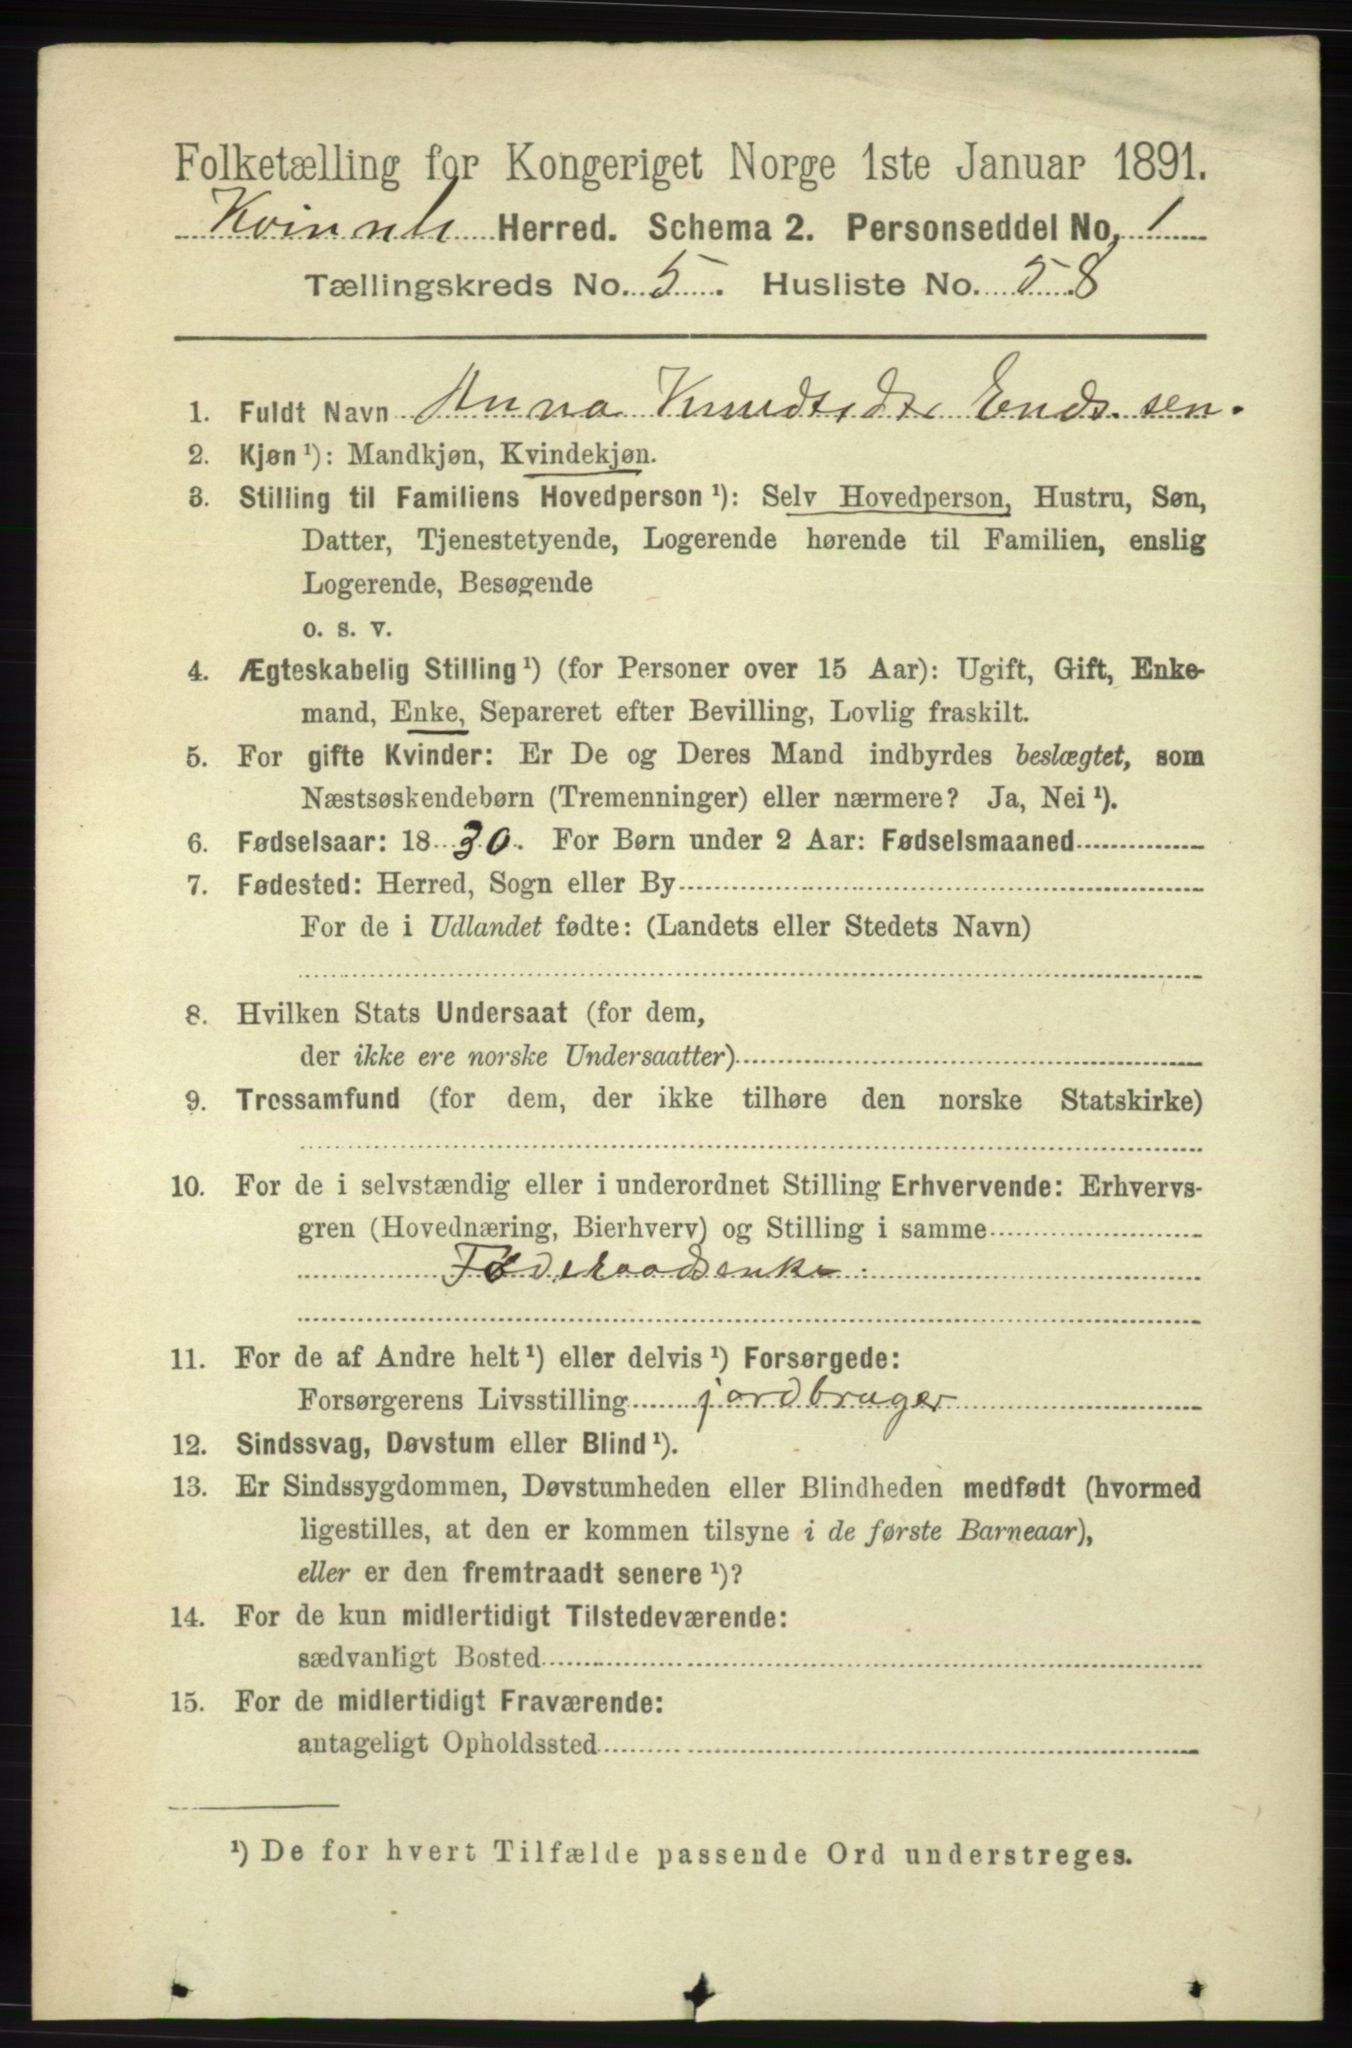 Folketælling for Kongeriget Norge 1ste Januar 1891.
Herred. Schema 2. Personseddel No. 1
Tællingskreds No. 5. Husliste No. 58
1. Fuldt Navn Anna Endssen.
2. Kjøn ¹): Mandkjøn, Kvindekjøn.
3. Stilling til Familiens Hovedperson ¹): Selv Hovedperson, Hustru, Søn,
Datter, Tjenestetyende, Logerende hørende til Familien, enslig
Logerende, Besøgende
o. s. v.
4. Ægteskabelig Stilling ¹) (for Personer over 15 Aar): Ugift, Gift, Enke-
mand, Enke, Separeret efter Bevilling, Lovlig fraskilt.
5. For gifte Kvinder: Er De og Deres Mand indbyrdes beslægtet, som
Næstsøskendebørn (Tremenninger) eller nærmere? Ja, Nei ¹).
6. Fødselsaar: 1830. For Børn under 2 Aar: Fødselsmaaned
7. Fødested: Herred, Sogn eller By
For de i Udlandet fødte: (Landets eller Stedets Navn)
8. Hvilken Stats Undersaat (for dem,
der ikke ere norske Undersaatter)
9. Trossamfund (for dem, der ikke tilhøre den norske Statskirke)
10. For de i selvstændig eller i underordnet Stilling Erhvervende: Erhvervs-
gren (Hovednæring, Bierhverv) og Stilling i samme
Føderaadsenke.
11. For de af Andre helt ¹) eller delvis ¹) Forsørgede:
Forsørgerens Livsstilling jordbruger
12. Sindssvag, Døvstum eller Blind ¹).
13. Er Sindssygdommen, Døvstumheden eller Blindheden medfødt (hvormed
ligestilles, at den er kommen tilsyne i de første Barneaar),
eller er den fremtraadt senere ¹)?
14. For de kun midlertidigt Tilstedeværende:
sædvanligt Bosted
15. For de midlertidigt Fraværende:
antageligt Opholdssted
¹) De for hvert Tilfælde passende Ord understreges.